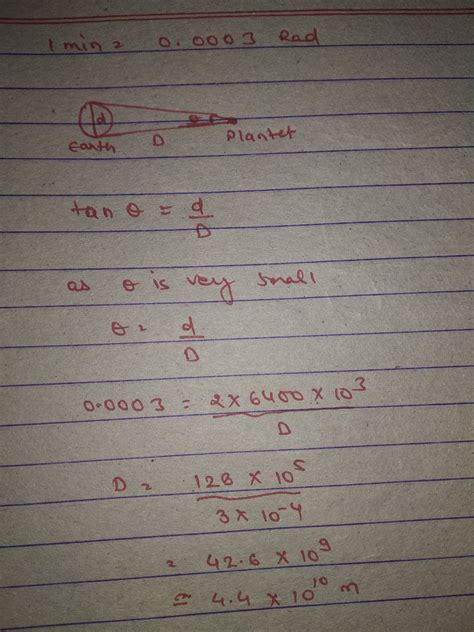 1 min = 0.0003 Rad
d θ
Earth D Plantet
tan θ = d/D
as θ is very small
θ = d/D
0.0003 = 2 × 6400 × 10³/D
D = 128 × 10⁵/3 × 10⁻⁴
= 42.6 × 10⁹
≃ 4.4 × 10¹⁰ m